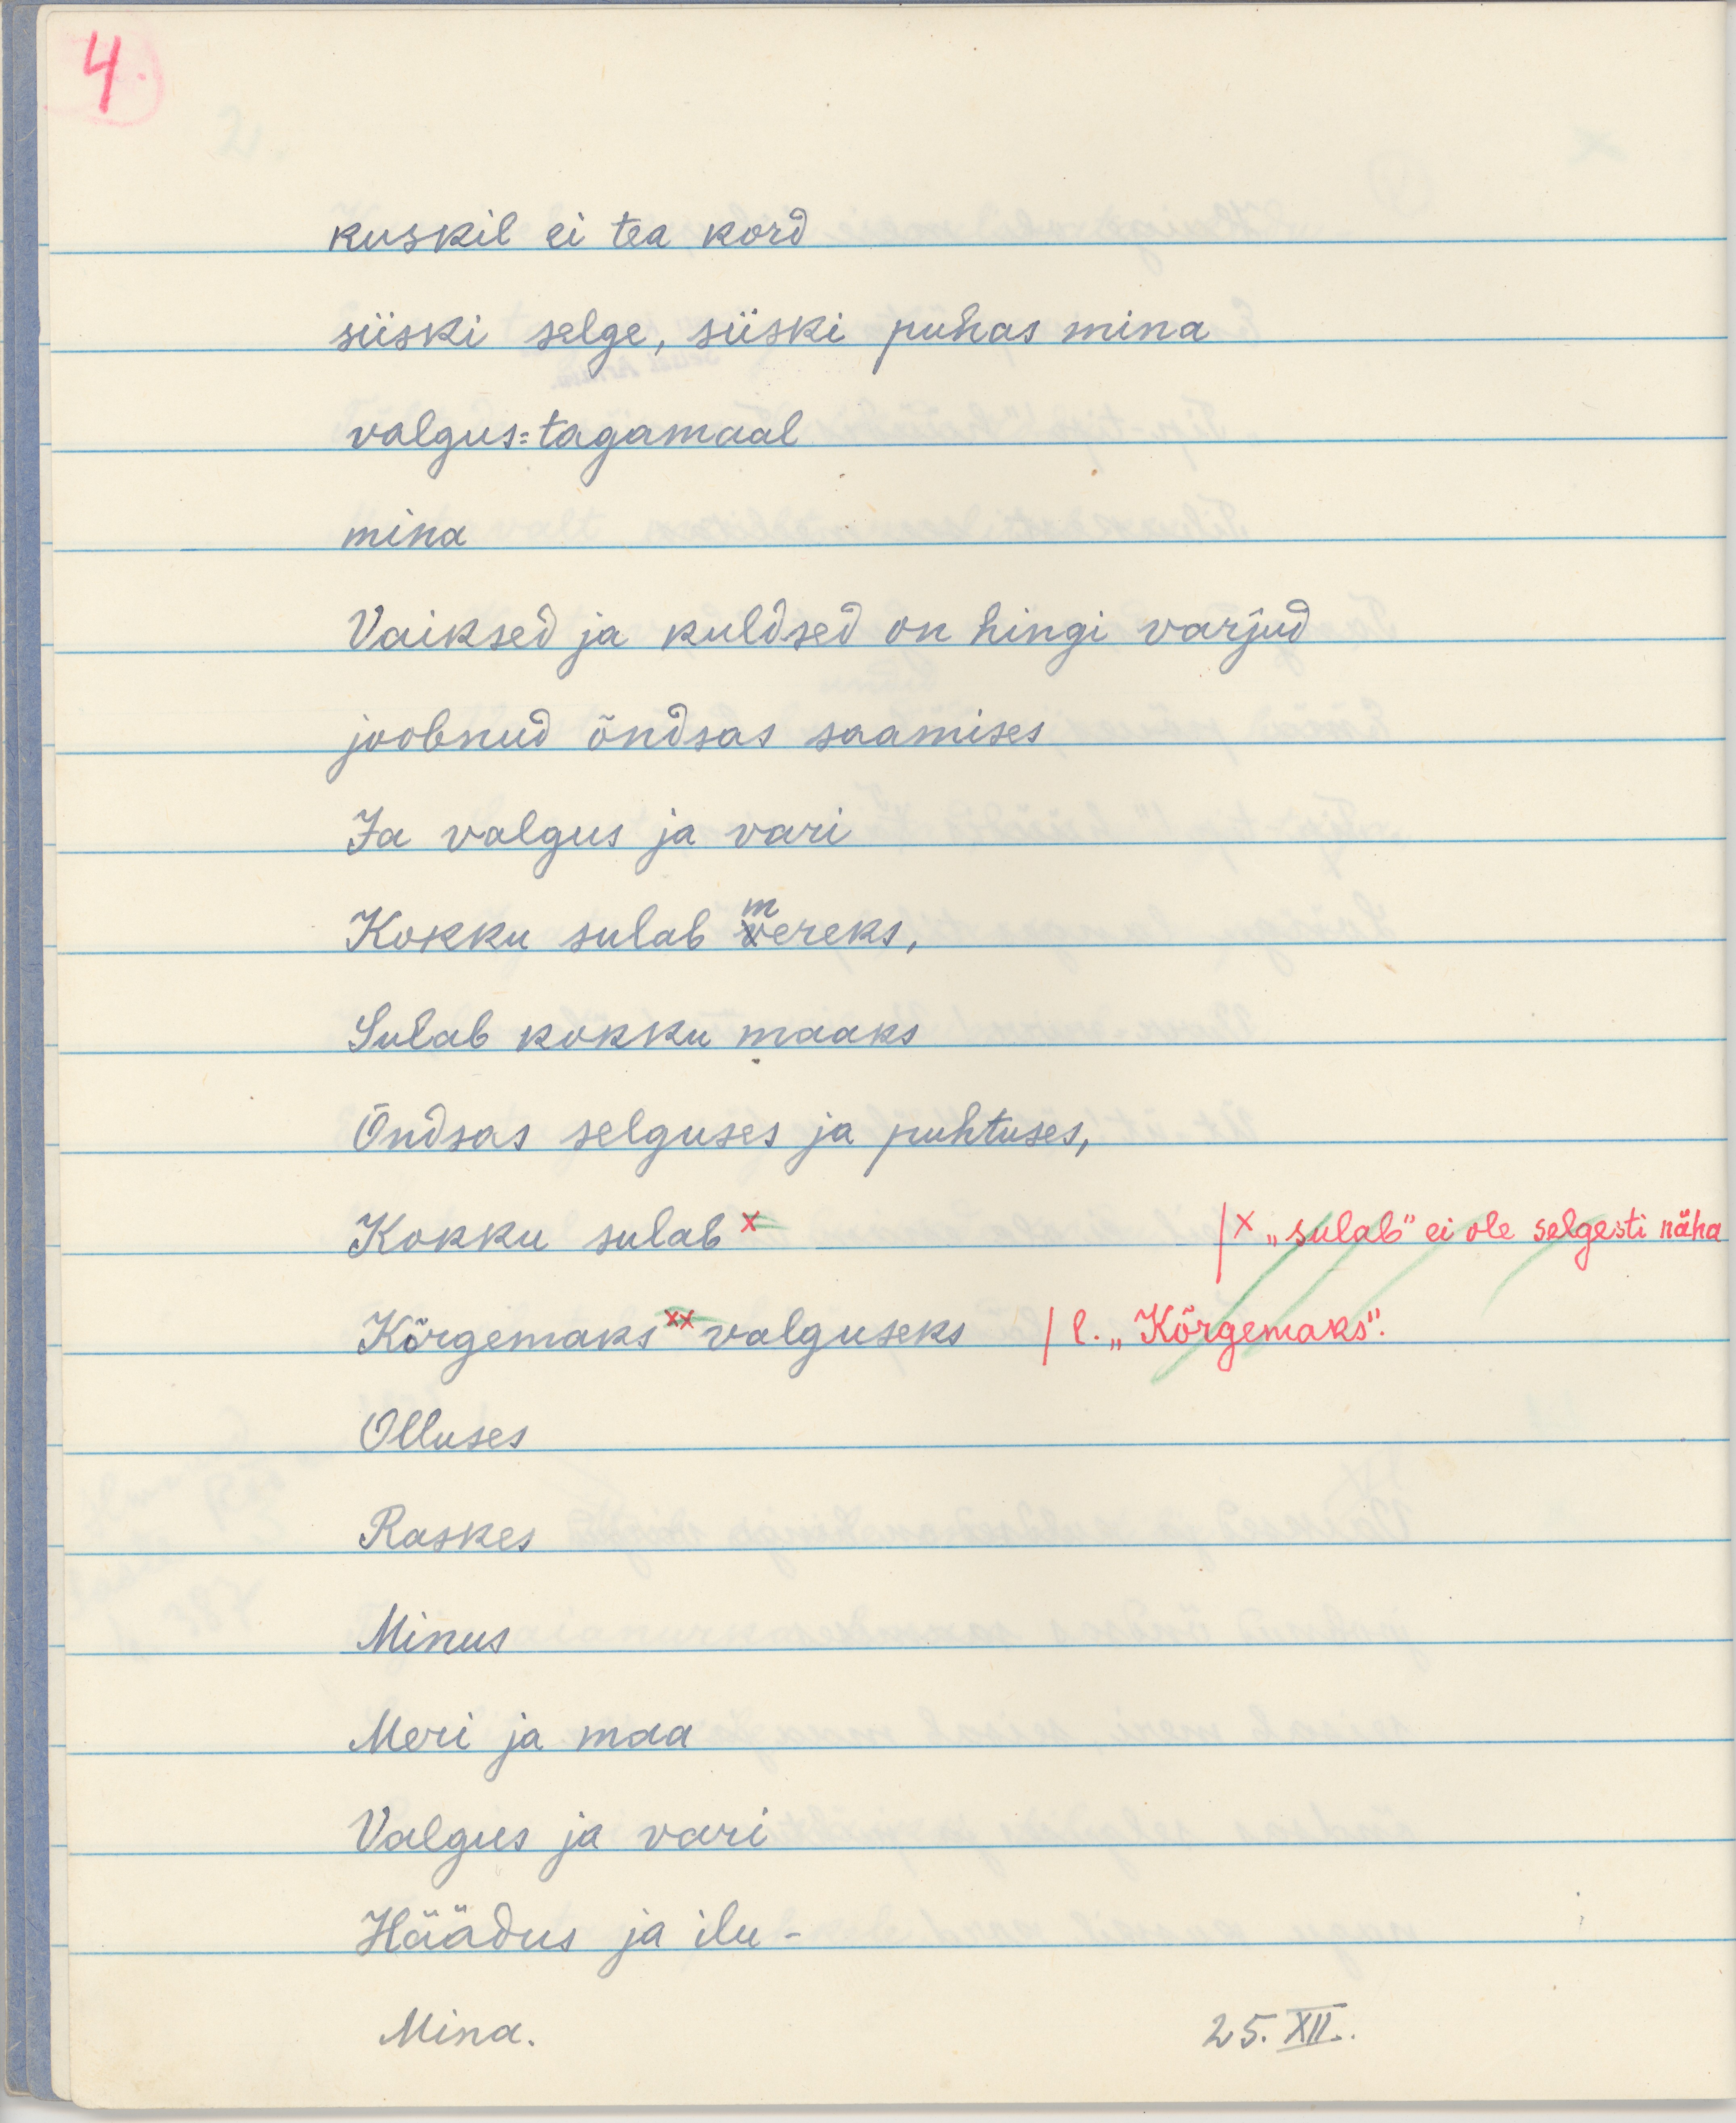 4.
kuskil ei tea kord
siiski selge, siiski puhas mina
valgus=tagamaal
mina
Vaiksed ja kuldsed on hingi varjud
joobnud õndsas saamises
Ja valgus ja vari
Kokku sulab mereks,
Sulab kokku maaks
Õndsas selguses ja puhtuses,
Kokku sulab x /x „sulab" ei ole selgesti näha
Kõrgemaks xx valguseks / l. „Kõrgemaks".
Olluses
Raskes
Minus
Meri ja maa
Valgus ja vari
Häädus ja ilu -
Mina. 25. XII.